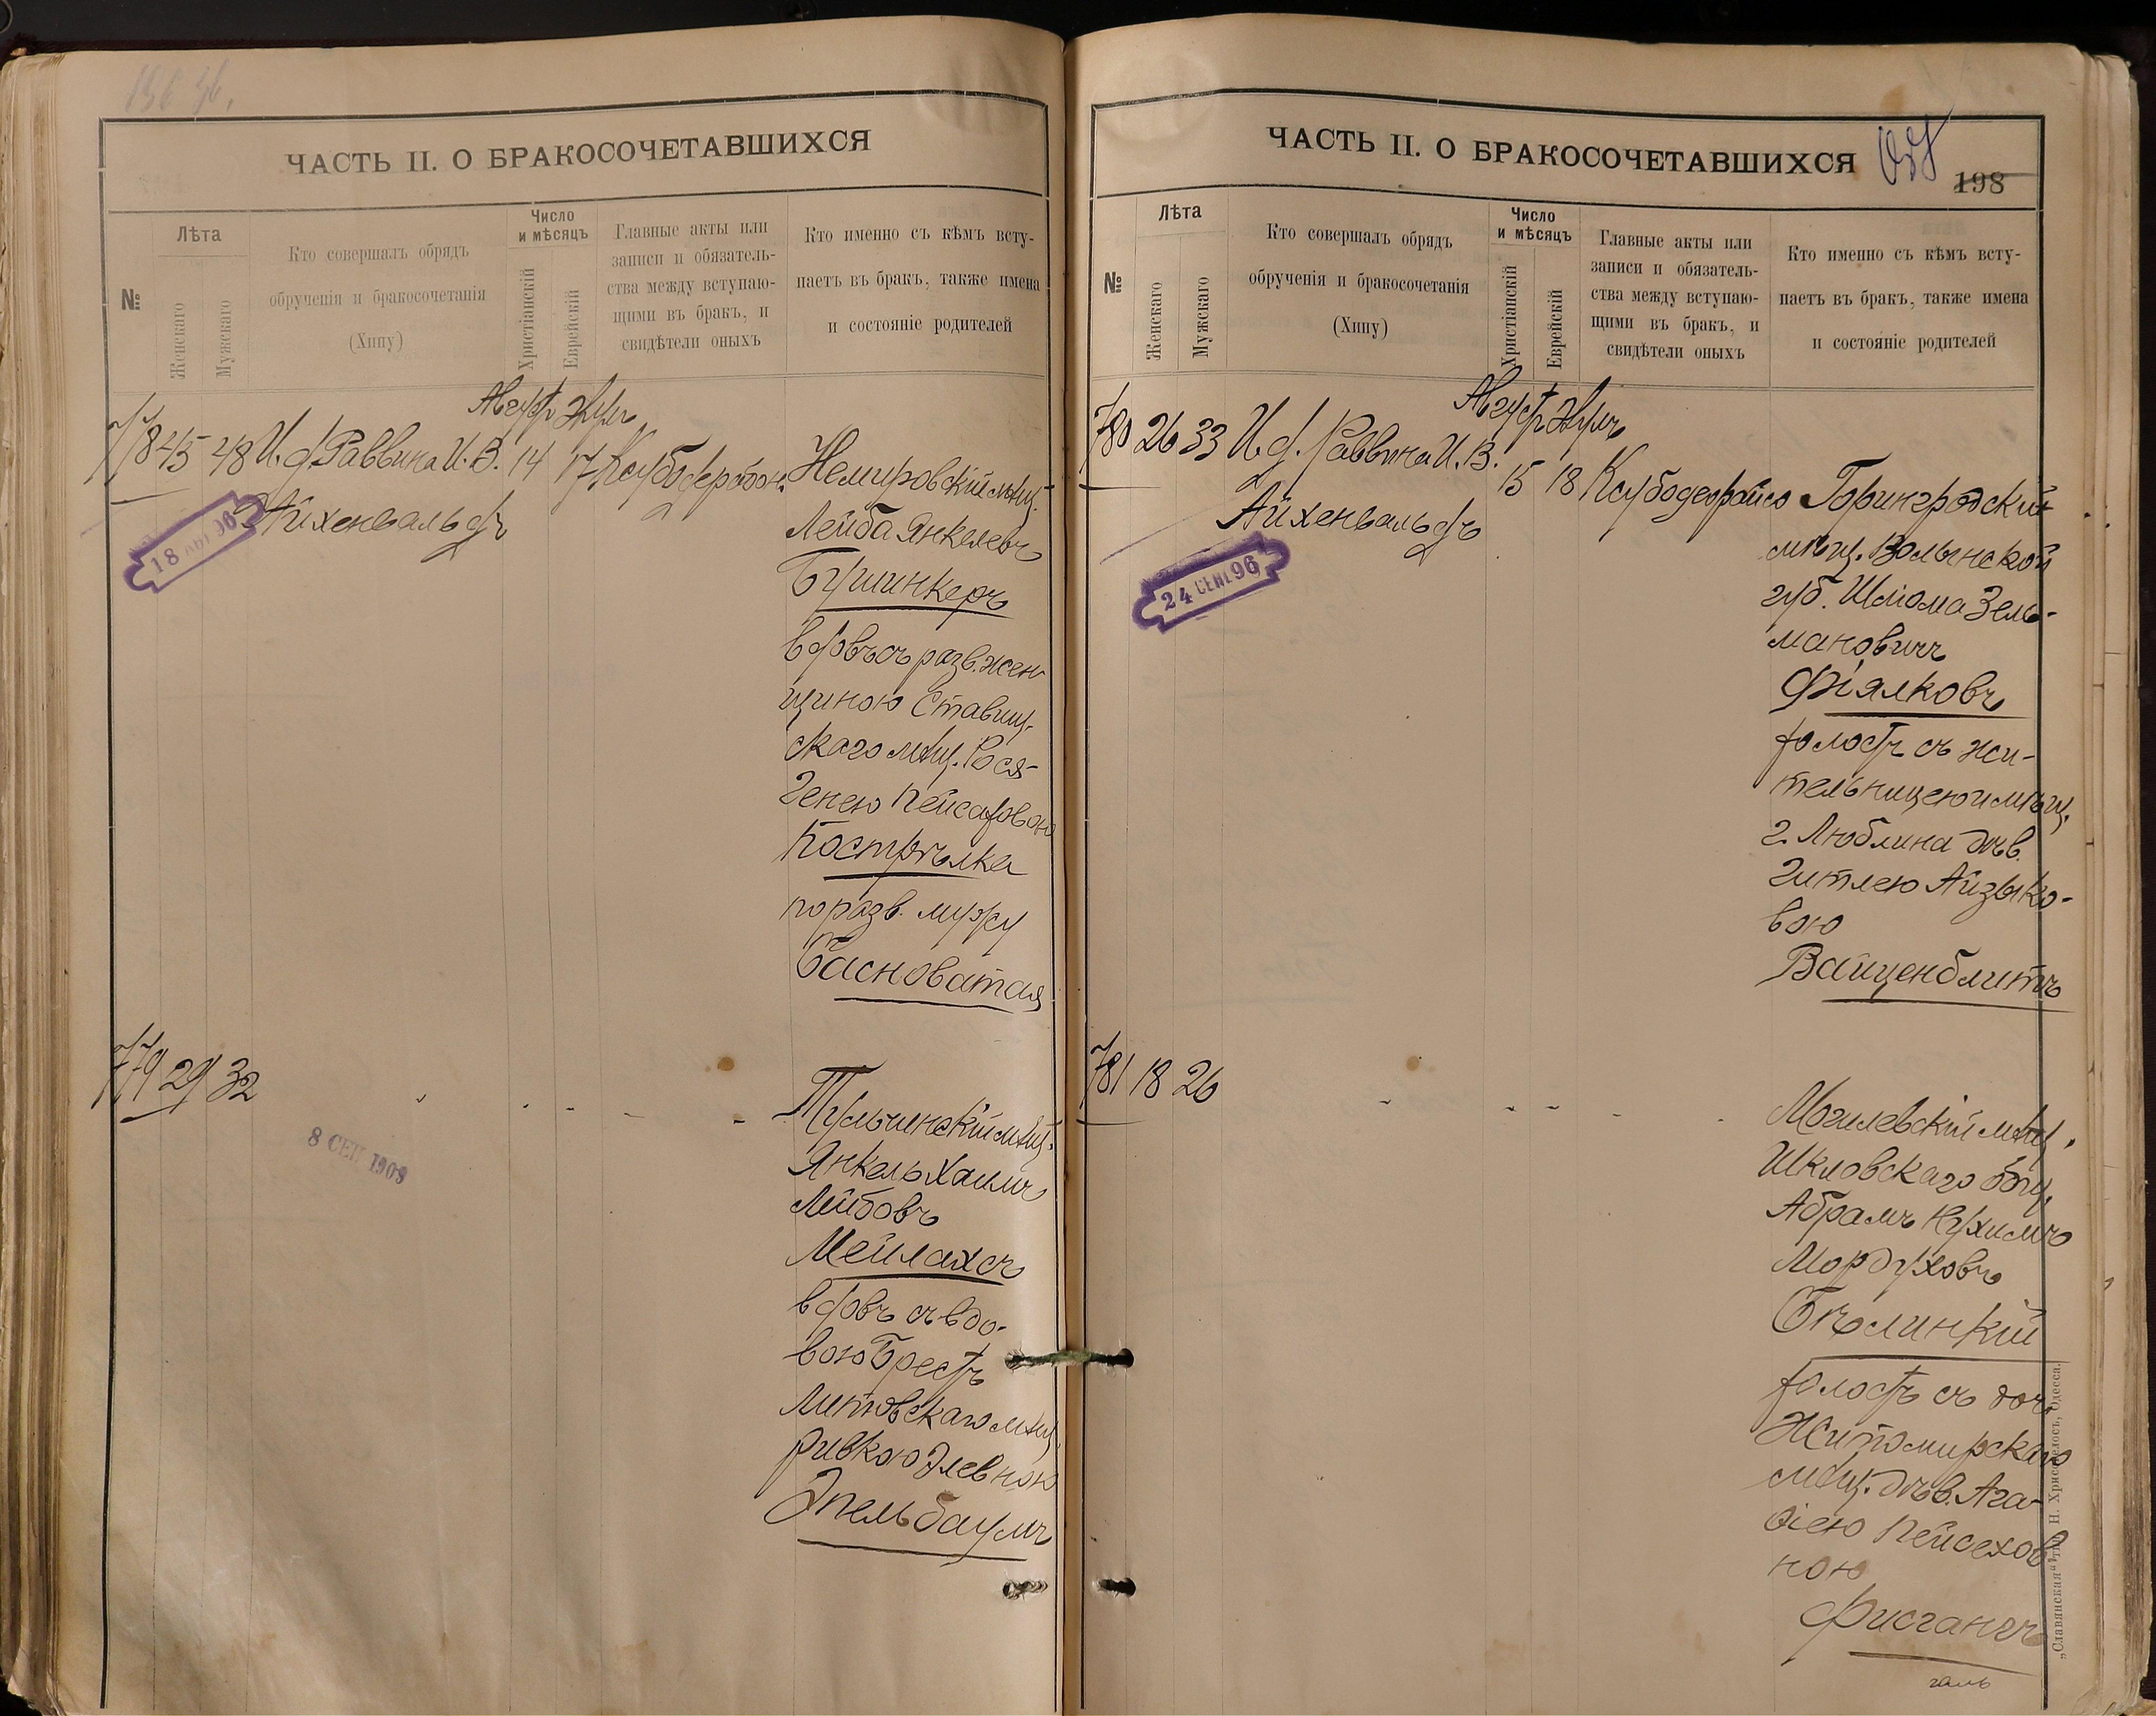 ЧАСТЬ II. О БРАКОСОЧЕТАВШИХСЯ
№
Лѣта
Женскаго
Мужскаго
Кто совершалъ обрядъ
обрученія и бракосочетанія
(Хипу)
Число
и мѣсяцъ
Христіанскій
Еврейскій
Главные акты или
записи и обязатель-
ства между вступаю-
щими въ бракъ, и
свидѣтели оныхъ
Кто именно съ кѣмъ всту-
паетъ въ бракъ, также имена
и состояніе родителей
Август Элулъ
778 45 48 И. д. Раввина И. В. 14 17
Айхенвальдъ
18 АВГ 96
Немировскій мѣщ.
Лейба Янкелевъ
Бушинкеръ
вдовъ съ разв. жен
щиною Ставищ-
скаго мѣщ. Рося-
Генею Пейсаховою
Кострѣлка
по разв. мужу
Басноватая
779 29 32
8 СЕН 1909
Тульчинскій мѣщ.
Янкель Хаимъ
Лейбовъ
Мейлахсъ
вдовъ съ вдо-
вою Брестъ
Литовскаго мѣщ.
Ривкою Элевною
Эпельбаумъ
ЧАСТЬ II. О БРАКОСОЧЕТАВШИХСЯ
198
№
Лѣта
Женскаго
Мужскаго
Кто совершалъ обрядъ
обрученія и бракосочетанія
(Хипу)
Число
и мѣсяцъ
Христіанскій
Еврейскій
Главные акты или
записи и обязатель-
ства между вступаю-
щими въ бракъ, и
свидѣтели оныхъ
Кто именно съ кѣмъ всту-
паетъ въ бракъ, также имена
и состояніе родителей
Август Элулъ
780 26 33 И. д. Раввина И. В. 15 18
Айхенвальдъ
24 СЕН 96
Горинградскій
мѣщ. Волынской
губ. Шліома Зель-
мановичъ
Фіялковъ
холостъ съ жи-
тельницею и мѣщ.
г. Люблина дѣв.
Гитлею Айзыко-
вою
Вайценблитъ
781 18 26
Могилевскій мѣщ.
Шкловскаго общ.
Абрамъ Нухимъ
Мордуховъ
Бѣлинкій
холостъ съ доч.
Житомирскаго
мѣщ. дѣв. Ага-
ѳіею Пейсехов
ною
Фисганъ
галь
„Славянская“ тип. Н. Хрисогелосъ, Одесса.